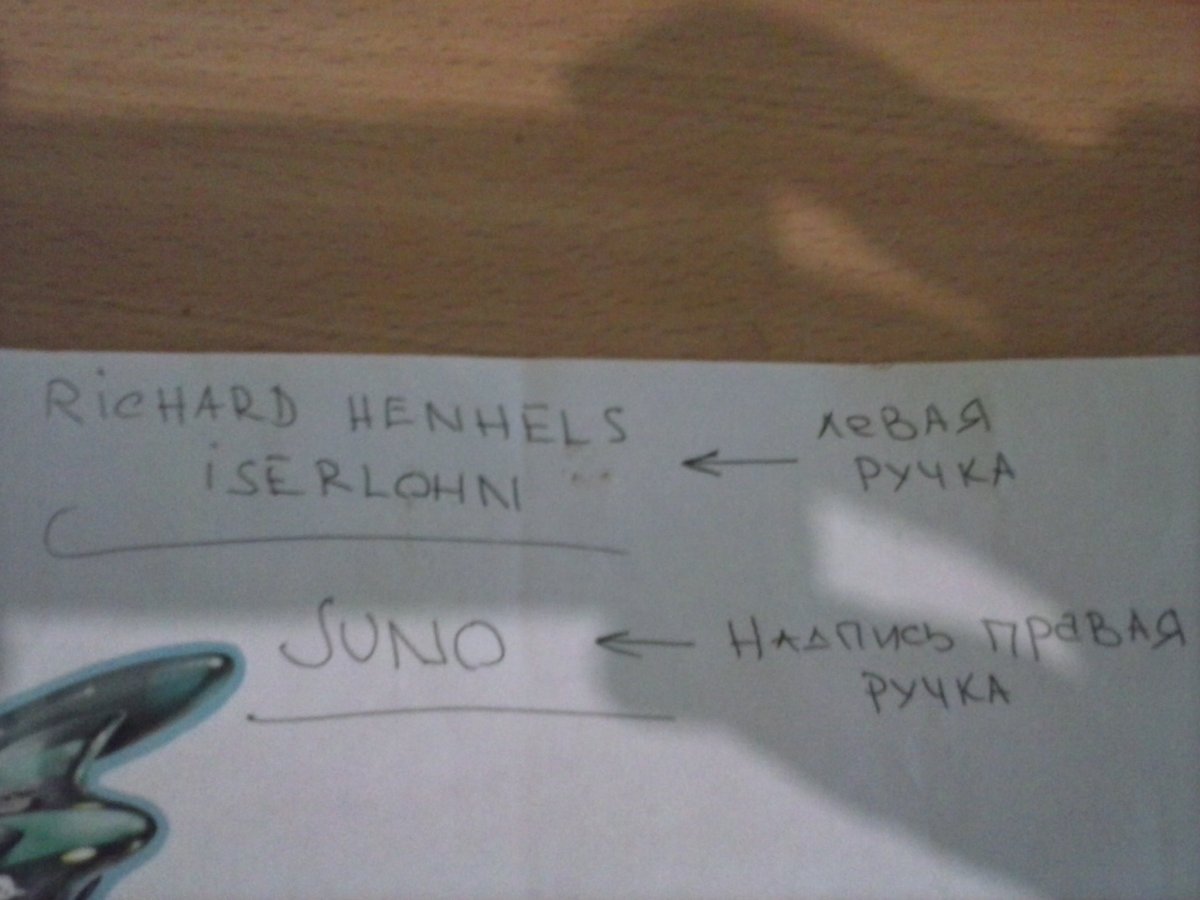 RiCHARD HENHELS
iSERLOHN
ЛЕВАЯ
РУЧКА
JUNO
НАДПИСЬ ПРАВАЯ
РУЧКА